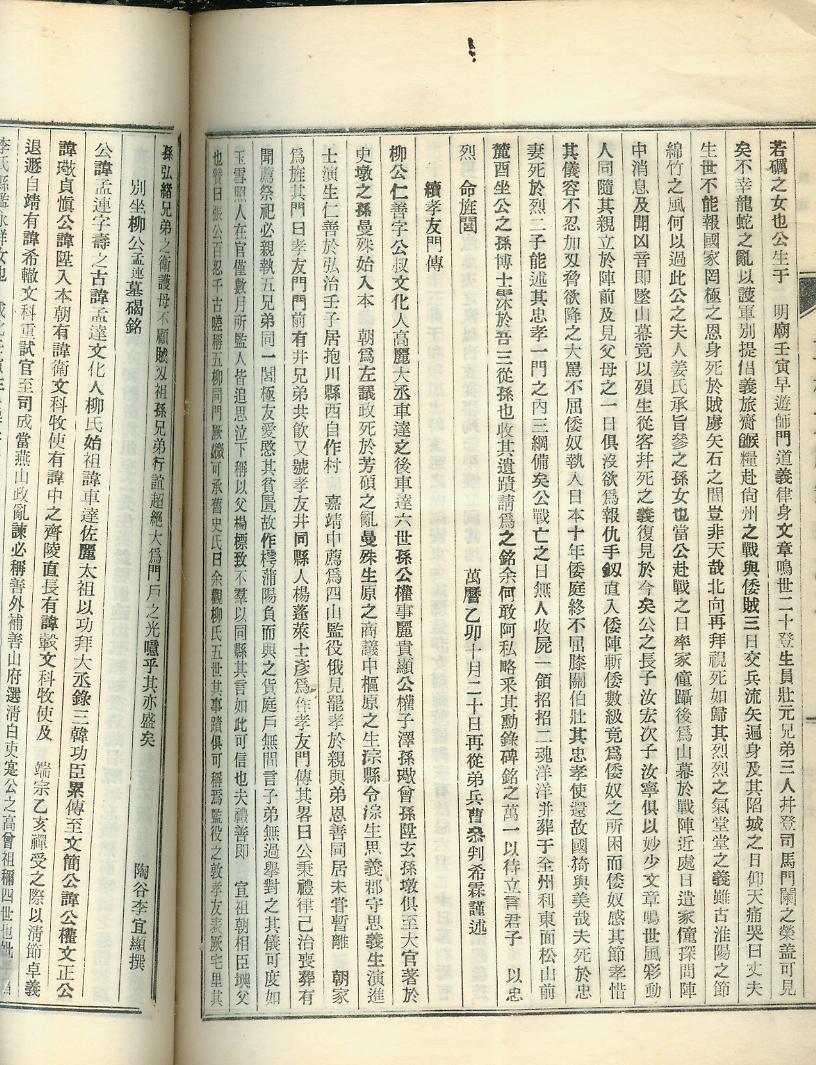 若礪之女也公生于 明廟壬寅早遊師門道義律身文章鳴世二十登生員壯元兄弟三人幷登司馬門闌之榮盖可見
矣不幸龍蛇之亂以護軍別提倡義旅齎餱糧赴尙州之戰與倭賊三日交兵流矢遍身及其陷城之日仰天痛哭曰丈夫
生世不能報國家罔極之恩身死於賊虜矢石之間豈非天哉北向再拜視死如歸其烈烈之氣堂堂之義雖古淮陽之節
綿竹之風何以過此公之夫人姜氏承旨參之孫女也當公赴戰之日率家僮躡後爲山幕於戰陣近處日遣家僮探問陣
中消息及聞凶音即墜山幕竟以殞生從容幷死之義復見於今矣公之長子汝宏次子汝寧俱以妙少文章鳴世風彩動
人同隨其親立於陣前及見父母之一日俱沒欲爲報仇手釰直入倭陣斬倭數級竟爲倭奴之所困而倭奴感其節孝惜
其儀容不忍加刃脅欲降之大罵不屈倭奴執入日本十年倭庭終不屈膝關伯壯其忠孝使還故國猗與美哉夫死於忠
妻死於烈二子能述其忠孝一門之內三綱備矣公戰亡之日無人收屍一領招招二魂洋洋幷葬于全州利東面松山前
麓酉坐公之孫博士 於吾三從孫也收其遺蹟請爲之銘余何敢阿私略釆其勳錄碑銘之萬一以待立言君子 以忠
烈 命旌閭 萬曆乙卯十月二十日再從弟兵曹叅判希霖謹述
續孝友門傳
柳公仁善字公叔文化人高麗大丞車達之後車達六世孫公權事麗貴顯公權子澤孫璥曾孫陞玄孫墩俱至大官著於
史墩之孫曼殊始入本 朝爲左議政死於芳碩之亂曼殊生原之商議中樞原之生淙縣令淙生思義郡守思義生演進
士演生仁善於弘治壬子居抱川縣西自作村 嘉靖中薦爲四山監役俄見罷孝於親與弟恩善同居未甞暫離 朝家
爲旌其門曰孝友門門前有井兄弟共飮又號孝友井同縣人楊蓬萊士彥爲作孝友門傳其畧曰公秉禮律己治喪葬有
聞薦祭祀必親執五兄弟同一閤極友愛愍其貧匱故作樗蒲陽負而與之貨庭戶無間言子弟無過擧對之其儀可度如
玉雪照人在官僅數月所監人皆追思泣下稱以父楊標致不羣以同縣其言如此可信也夫禮善即 宣祖朝相臣㙉父
也贊曰張公百忍千古曉稱五柳同門厥緻可承舊史氏曰余觀柳氏五世其事蹟俱可稱焉監役之敦孝友表厥宅里其
孫弘緖兄弟之衛護母不顧賊刃祖孫兄弟行誼超絕大爲門戶之光噫乎其亦盛矣
別坐柳公孟連墓碣銘 陶谷李宜顯撰
公諱孟連字壽之古諱孟達文化人柳氏始祖諱車達佐麗太祖以功拜大丞錄三韓功臣累傳至文簡公諱公權文正公
諱璥貞愼公諱陞入本朝有諱衛文科牧使有諱中之齊陵直長有諱轂文科牧使及 端宗乙亥禪受之際以淸節卓義
退遯自靖有諱希轍文科重試官至司成當燕山政亂諫必稱善外補善山府選淸白吏寔公之高曾祖禰四世也